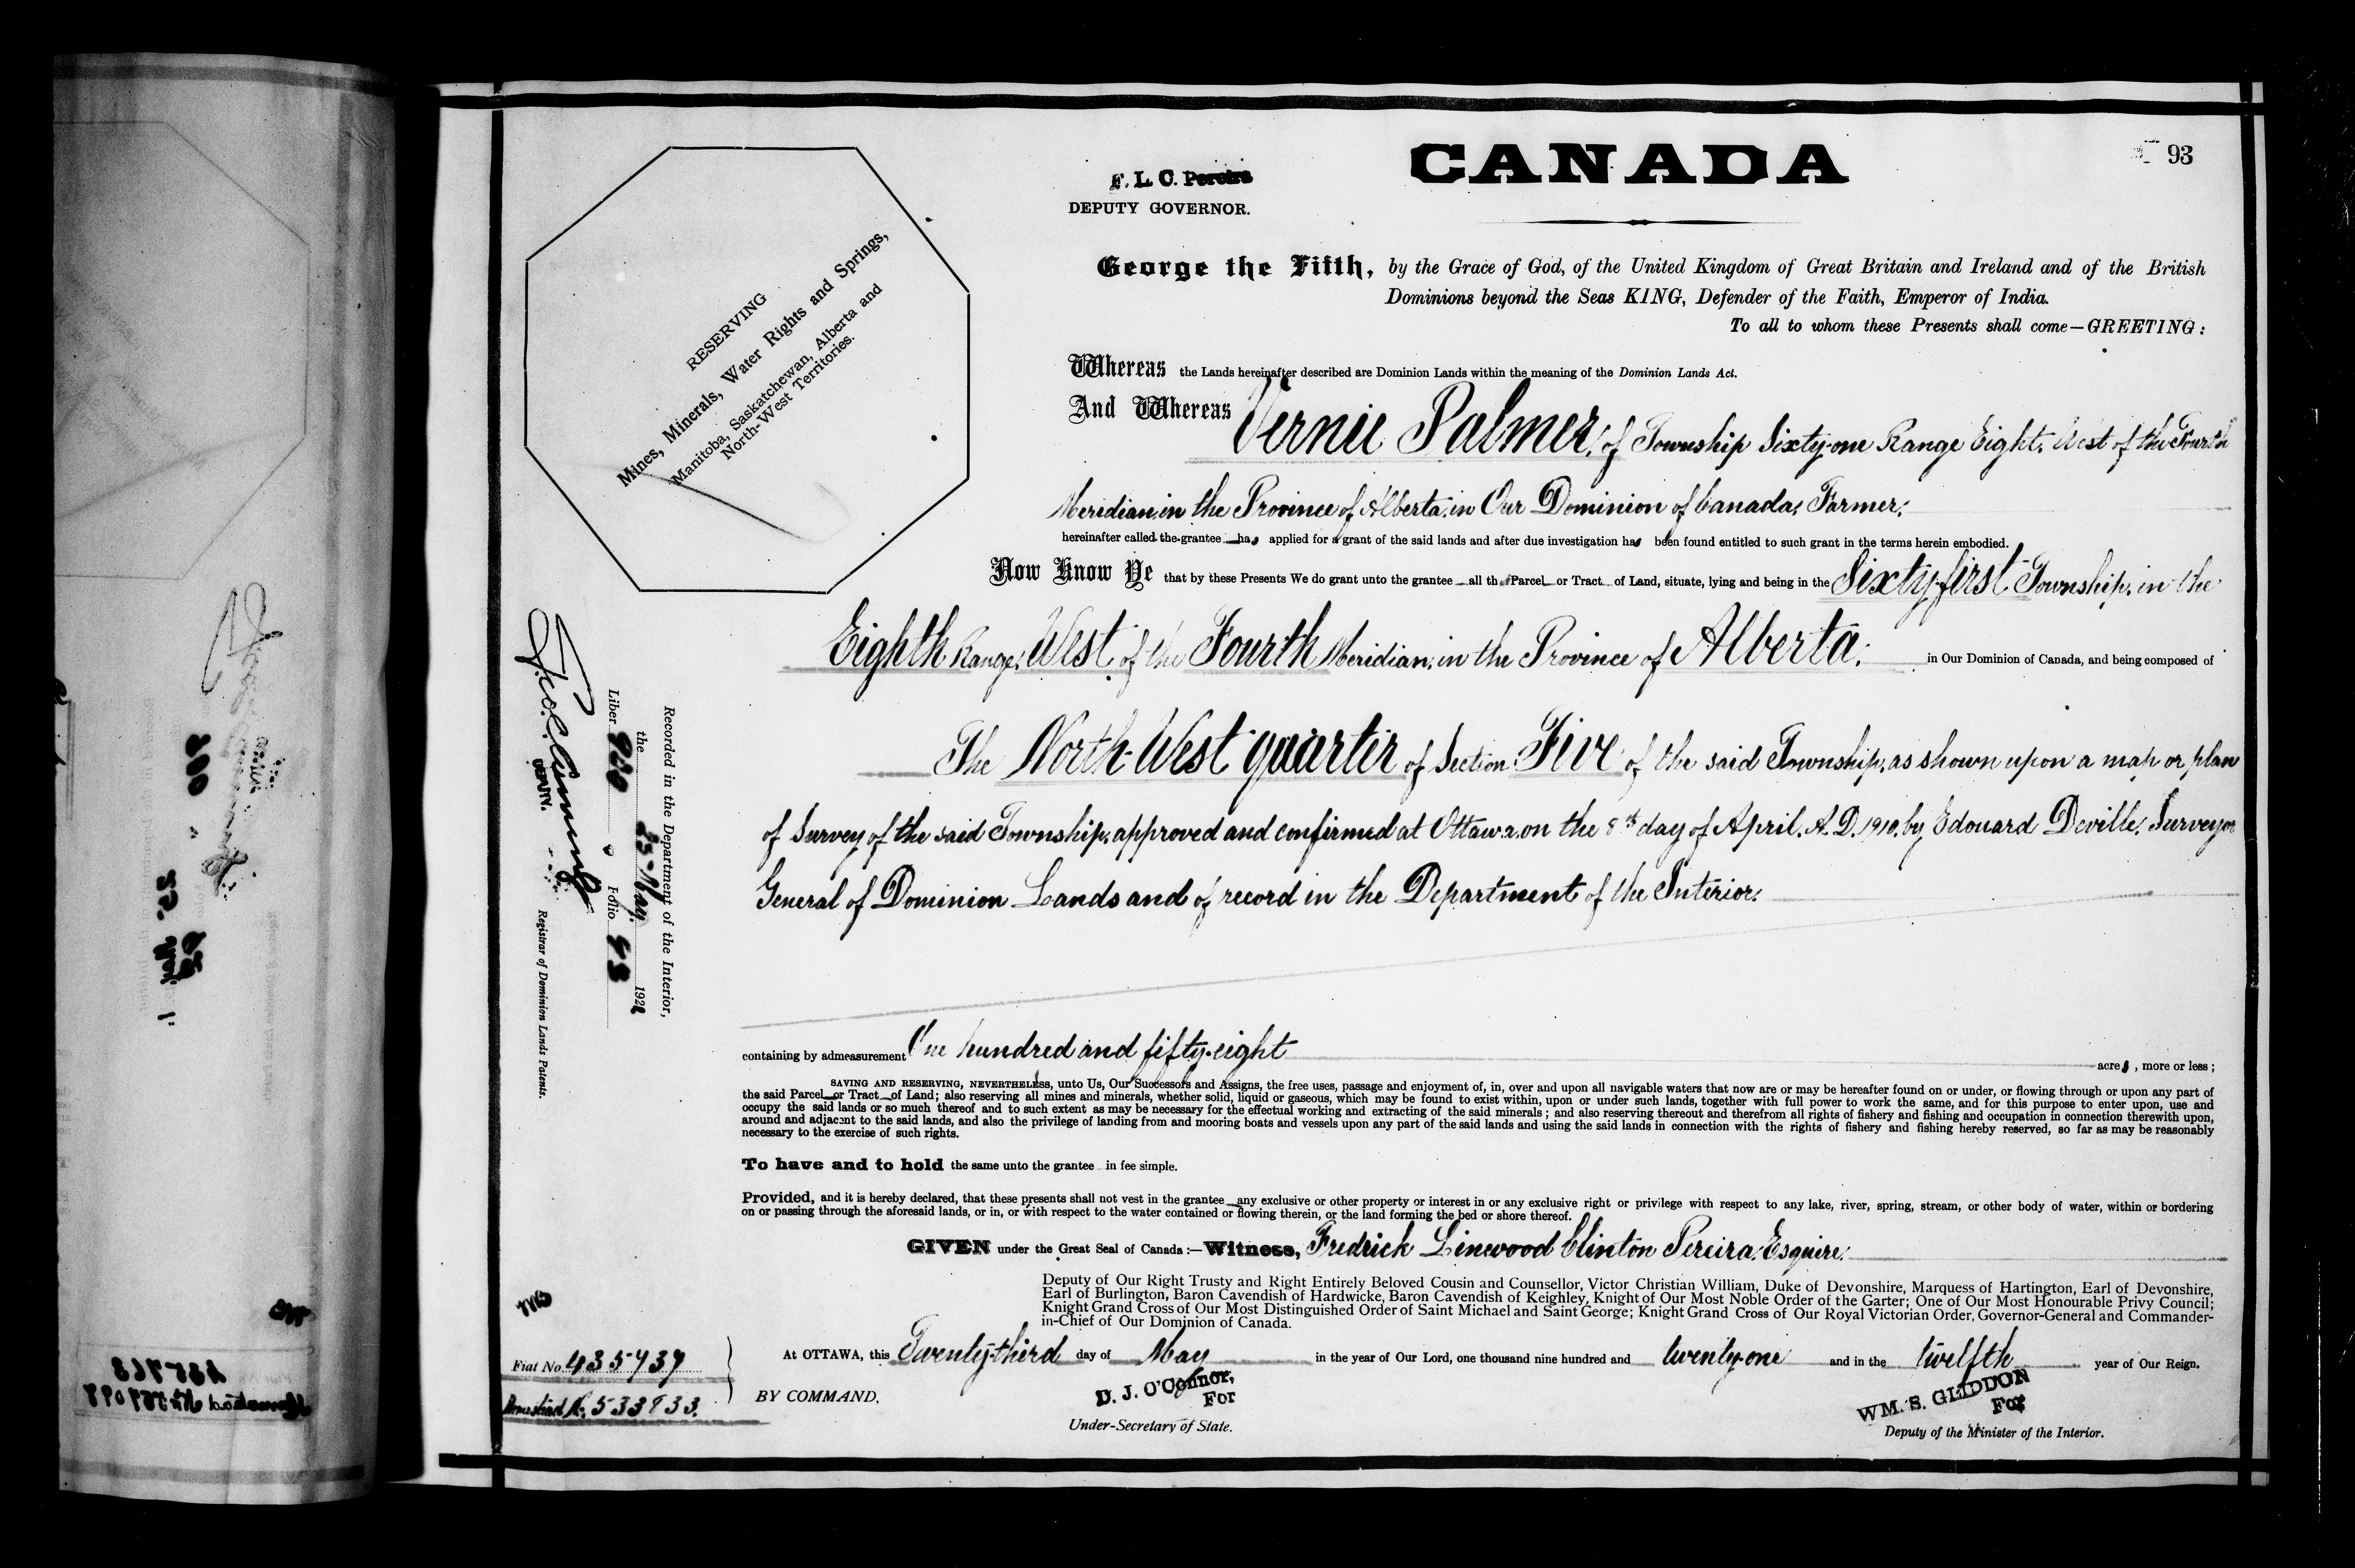 CANADA
93
F. L. C. Pereira
DEPUTY GOVERNOR.
RESERVING
Mines, Minerals, Water Rights and Springs,
Manitoba, Saskatchewan, Alberta and
North-West Territories.
George the Fifth, by the Grace of God, of the United Kingdom of Great Britain and Ireland and of the British
Dominions beyond the Seas KING, Defender of the Faith, Emperor of India.
To all to whom these Presents shall come—GREETING:
Whereas the Lands hereinafter described are Dominion Lands within the meaning of the Dominion Lands Act.
And Whereas Vernie Palmer, of Township Sixty-one Range Eight, West of the Fourth
Meridian, in the Province of Alberta, in Our Dominion of Canada, Farmer,
hereinafter called the grantee has applied for a grant of the said lands and after due investigation has been found entitled to such grant in the terms herein embodied.
Now Know Ye that by these Presents We do grant unto the grantee all that Parcel or Tract of Land, situate, lying and being in the Sixty-first Township, in the
Eighth Range, West of the Fourth Meridian, in the Province of Alberta, in Our Dominion of Canada, and being composed of
The North-West quarter of Section Five of the said Township, as shown upon a map or plan
of Survey of the said Township, approved and confirmed at Ottawa, on the 8th day of April, A.D. 1910, by Edouard Deville, Surveyor
General of Dominion Lands and of record in the Department of the Interior.
containing by admeasurement One hundred and fifty-eight acres, more or less;
SAVING AND RESERVING, NEVERTHELESS, unto Us, Our Successors and Assigns, the free uses, passage and enjoyment of, in, over and upon all navigable waters that now are or may be hereafter found on or under, or flowing through or upon any part of
the said Parcel or Tract of Land; also reserving all mines and minerals, whether solid, liquid or gaseous, which may be found to exist within, upon or under such lands, together with full power to work the same, and for this purpose to enter upon, use and
occupy the said lands or so much thereof and to such extent as may be necessary for the effectual working and extracting of the said minerals; and also reserving thereout and therefrom all rights of fishery and fishing and occupation in connection therewith upon,
around and adjacent to the said lands, and also the privilege of landing from and mooring boats and vessels upon any part of the said lands and using the said lands in connection with the rights of fishery and fishing hereby reserved, so far as may be reasonably
necessary to the exercise of such rights.
To have and to hold the same unto the grantee in fee simple.
Provided, and it is hereby declared, that these presents shall not vest in the grantee any exclusive or other property or interest in or any exclusive right or privilege with respect to any lake, river, spring, stream, or other body of water, within or bordering
on or passing through the aforesaid lands, or in, or with respect to the water contained or flowing therein, or the land forming the bed or shore thereof.
GIVEN under the Great Seal of Canada:—Witness, Fredrick Linwood Clinton Pereira, Esquire,
Deputy of Our Right Trusty and Right Entirely Beloved Cousin and Counsellor, Victor Christian William, Duke of Devonshire, Marquess of Hartington, Earl of Devonshire,
Earl of Burlington, Baron Cavendish of Hardwicke, Baron Cavendish of Keighley, Knight of Our Most Noble Order of the Garter; One of Our Most Honourable Privy Council;
Knight Grand Cross of Our Most Distinguished Order of Saint Michael and Saint George; Knight Grand Cross of Our Royal Victorian Order, Governor-General and Commander-
in-Chief of Our Dominion of Canada.
At OTTAWA, this Twenty-third day of May in the year of Our Lord, one thousand nine hundred and twenty-one and in the twelfth year of Our Reign.
BY COMMAND,
D. J. O'Connor,
For
Under-Secretary of State.
WM. S. GLIDDON
For
Deputy of the Minister of the Interior.
Recorded in the Department of the Interior,
the 25 May 1921
Liber Folio 93
DEPUTY.
Registrar of Dominion Lands Patents.
Fiat No. 435939
Homestead No. 533833.